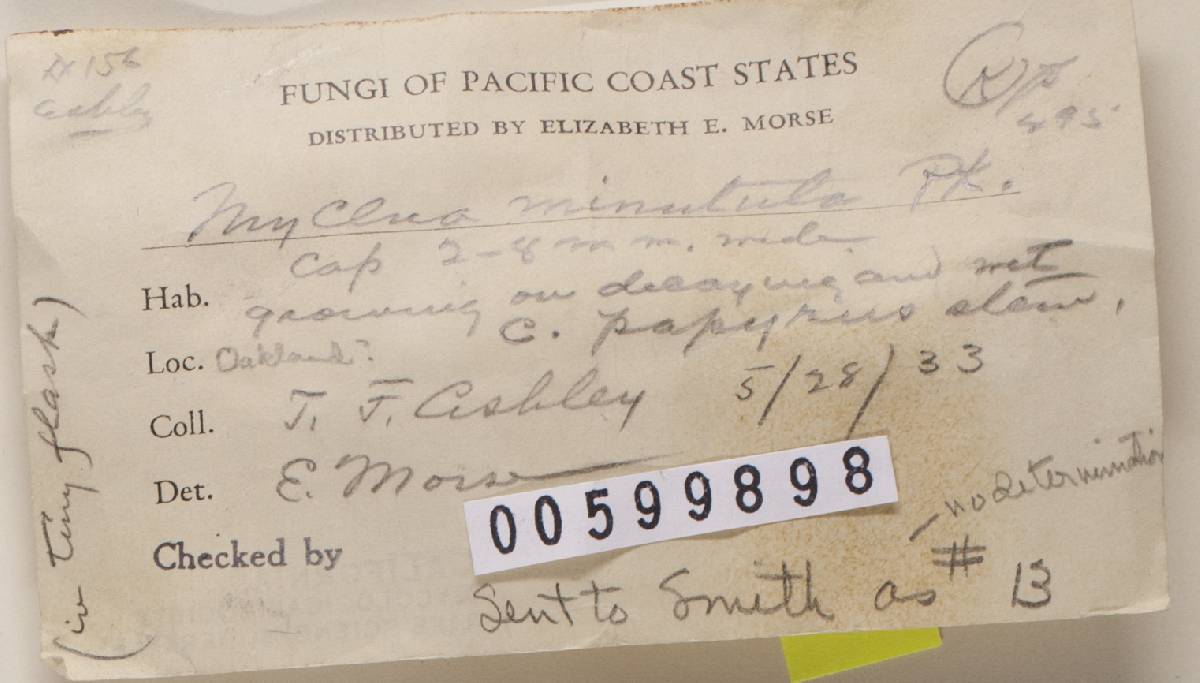 # 156
Ashley
FUNGI OF PACIFIC COAST STATES
DISTRIBUTED BY ELIZABETH E. MORSE
895
Mycena minutula Pk.
Cap 2-8 m m. wide
Hab. growing on decaying and wet
C. papyrus stem,
Loc. Oakland?
Coll. T. T. Ashley 5/28/33
Det. E. Morse
00599898
Checked by
Sent to Smith as # 13
- no determination
(in tiny flask)